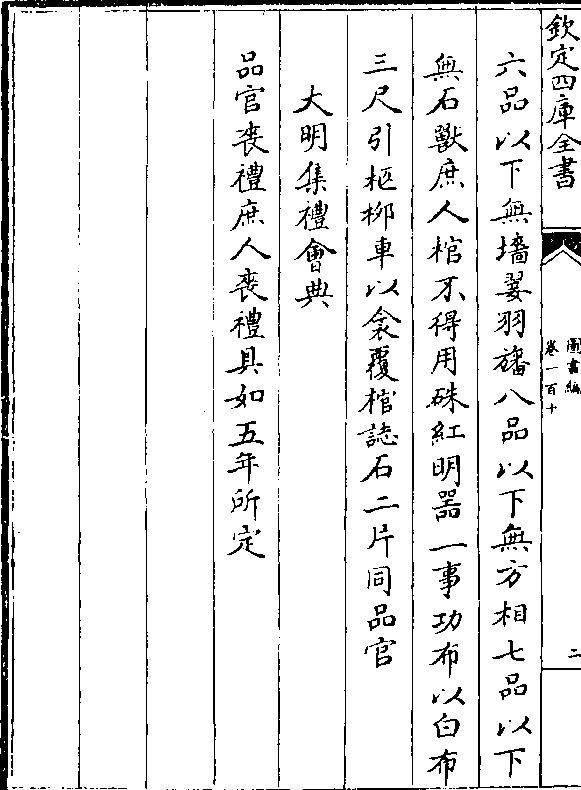 欽定四庫全書
圖書編
卷一百十
二
六品以下無墻翣羽旛八品以下無方相七品以下
無石獸庶人棺不得用硃紅明器一事功布以白布
三尺引柩柳車以衾覆棺誌石二片同品官
大明集禮會典
品官喪禮庶人喪禮具如五年所定